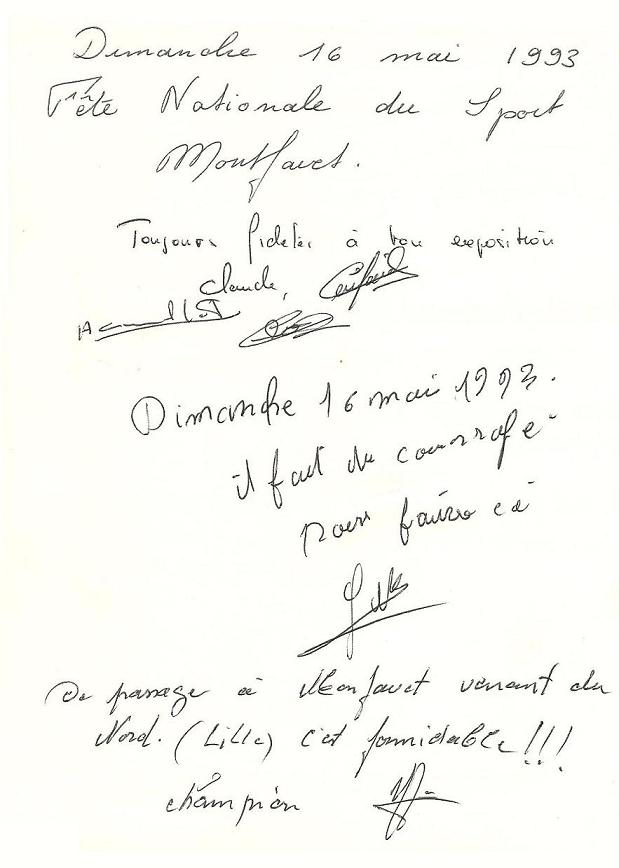 Dimanche 16 mai 1993
Fête Nationale du Sport
Montfavet.
Toujours fidèles à ton exposition
Claude,
Dimanche 16 mai 1993.
il faut du courrage
pour faire ça
De passage à Monfavet venant du
Nord. (Lille) c'est formidable !!!
champion